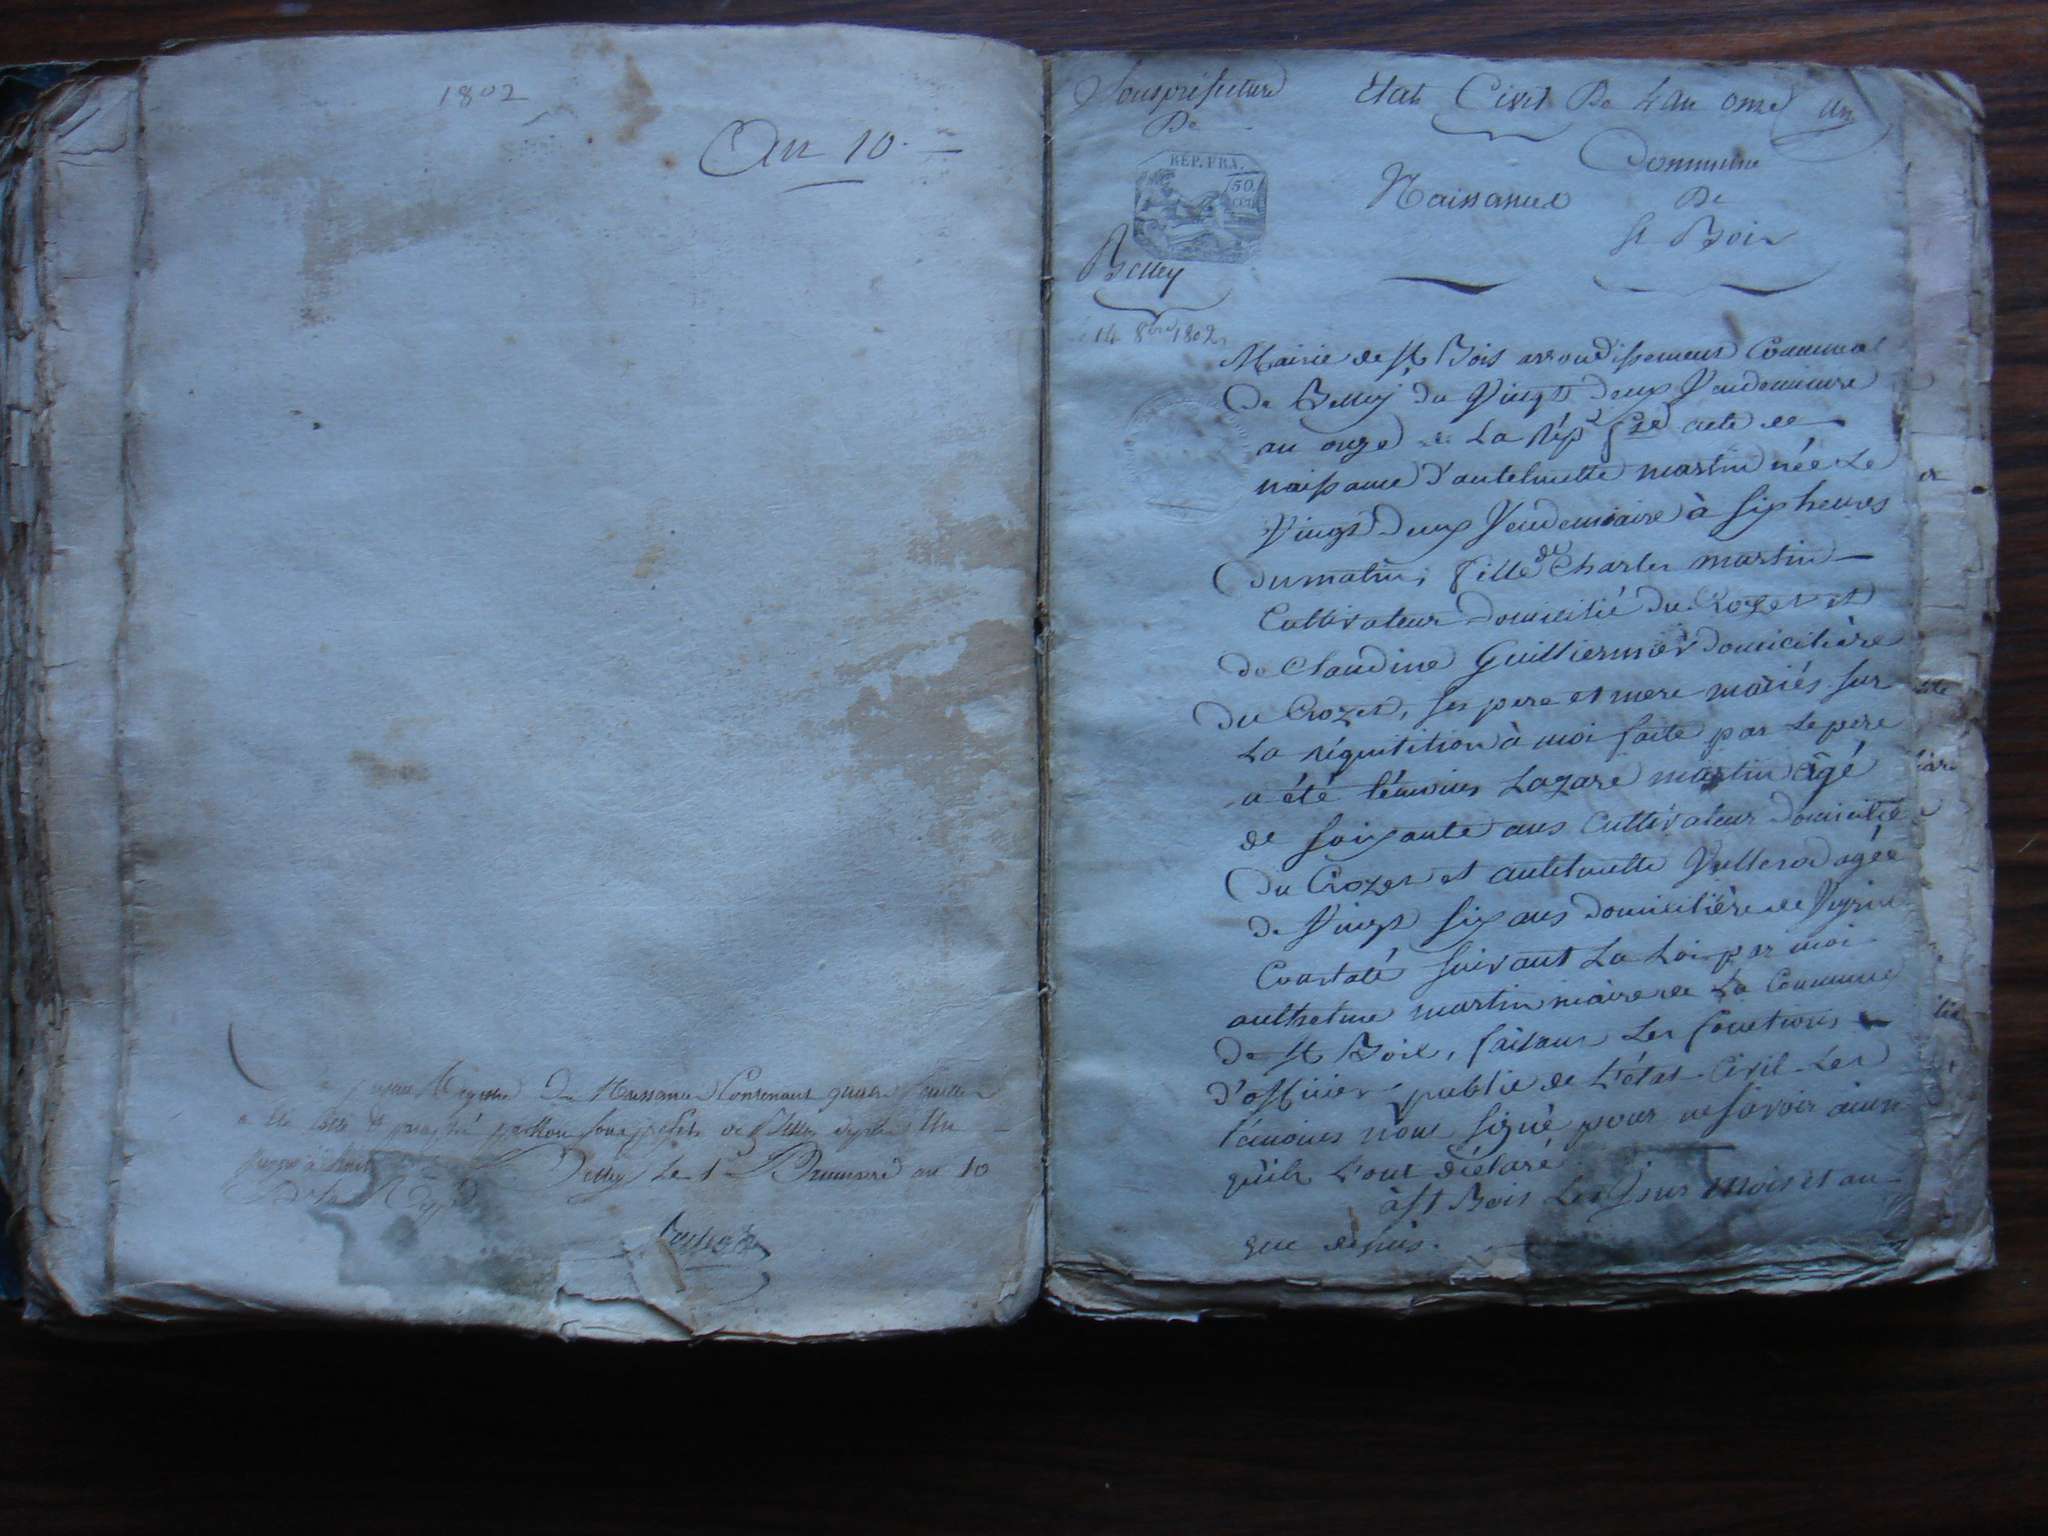 1802
An 10.
Registre De Naissance Contenant
a été par sous préfet de Belley Un
jusqu'à huit Belley Le 1er Brumaire an 10
De la Rép
Souspréfecture
De
RÉP. FRA.
50
CEN
Belley
14 8bre 1802
Etat Civil De L'an onze
un
Naissance
Commune
De
St Bois
Mairie de St Bois arrondissement Communal
De Belley du Vingt Deux Vendemiaire
an onze de La Rép fse acte de
naissance d'antelmette martin née Le
Vingt Deux Vendemiaire à six heures
du matin, fille de Charles martin
Cultivateur Domicilié Du Crozet et
de Claudine Guilliermier Domicilière
Du Crozet, ses pere et mere mariés sur
La réquitition à moi faite par Le pere
a été témoins Lazare martin âgé
de soixante ans Cultivateur Domicilié
Du Crozet et antelmette agée
de Vingt six ans Domicilière de
Constaté suivant La Loi par moi
anthelme martin maire de La Commune
De St Bois, faisant Les fonctions
d'officier public de L'état Civil Les
témoins n'ont signé pour ne savoir ainsi
qu'ils L'ont déclaré
à St Bois Les Jour mois et an
que dessus.